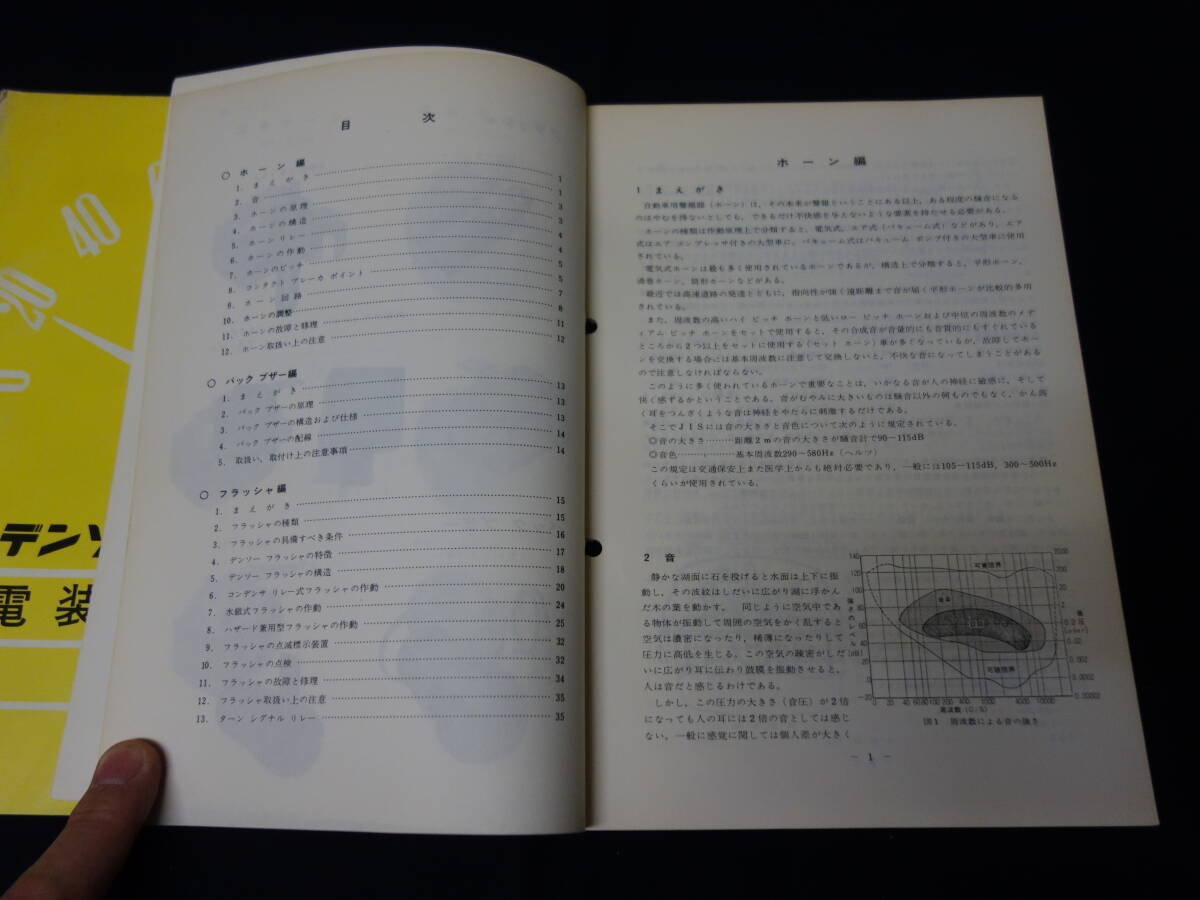 20
40
0
デンソ
電装
目 次
○ ホーン編
1. まえがき 1
2. 音 1
3. ホーンの原理 3
4. ホーンの構造 3
5. ホーンリレー 4
6. ホーンの作動 4
7. ホーンのピッチ 5
8. コンタクト ブレーカ ポイント 5
9. ホーン回路 7
10. ホーンの調整 8
11. ホーンの故障と修理 11
12. ホーン取扱い上の注意 12
○ バック ブザー編
1. まえがき 13
2. バック ブザーの原理 13
3. バック ブザーの構造および仕様 13
4. バック ブザーの配線 14
5. 取扱い、取付け上の注意事項 14
○ フラッシャ編
1. まえがき 15
2. フラッシャの種類 15
3. フラッシャの具備すべき条件 16
4. デンソー フラッシャの特徴 17
5. デンソー フラッシャの構造 18
6. コンデンサ リレー式フラッシャの作動 20
7. 水銀式フラッシャの作動 24
8. ハザード兼用型フラッシャの作動 25
9. フラッシャの点滅標示装置 32
10. フラッシャの点検 32
11. フラッシャの故障と修理 34
12. フラッシャ取扱い上の注意 35
13. ターン シグナル リレー 35
ホーン編
1 まえがき
自動車用警報器(ホーン)は、その本来が警報ということにある以上、ある程度の騒音になる
のはやむを得ないとしても、できるだけ不快感を与えないような要素を持たせる必要がある。
ホーンの種類は作動原理上で分類すると、電気式、エア式(バキューム式)などがあり、エア
式はエア コンプレッサ付きの大型車に、バキューム式はバキューム ポンプ付きの大型車に使用
されている。
電気式ホーンは最も多く使用されているホーンであるが、構造上で分類すると、平形ホーン、
渦巻ホーン、筒形ホーンなどがある。
最近では高速道路の発達とともに、指向性が強く遠距離まで音が届く平形ホーンが比較的多用
されている。
また、周波数の高いハイ ピッチ ホーンと低いロー ピッチ ホーンおよび中位の周波数のメデ
ィアム ピッチ ホーンをセットで使用すると、その合成音が音量的にも音質的にもすぐれている
ところから2つ以上をセットに使用する(セット ホーン)車が多くなっているが、故障してホー
ンを交換する場合には基本周波数に注意して交換しないと、不快な音になってしまうことがある
ので注意しなければならない。
このように多く使われているホーンで重要なことは、いかなる音が人の神経に敏感に、そして
快く感ずるかということである。音がむやみに大きいものは騒音以外の何ものでもなく、かん高
く耳をつんざくような音は神経をやたらに刺激するだけである。
そこでJISには音の大きさと音色について次のように規定されている。
◎音の大きさ………距離2mの音の大きさが騒音計で90~115dB
◎音色………基本周波数290~580Hz(ヘルツ)
この規定は交通保安上また医学上からも絶対必要であり、一般には105~115dB、300~500Hz
くらいが使用されている。
2 音
静かな湖面に石を投げると水面は上下に振
動し、その波紋はしだいに広がり湖に浮かん
だ木の葉を動かす。 同じように空気中であ
る物体が振動して周囲の空気をかく乱すると
空気は濃密になったり、稀薄になったりして
圧力に高低を生じる。この空気の疎密がしだ
いに広がり耳に伝わり鼓膜を振動させると、
人は音だと感じるわけである。
しかし、この圧力の大きさ(音圧)が2倍
になっても人の耳には2倍の音としては感じ
ない。一般に感覚に関しては個人差が大きく
強さのレベル
(dB)
140
120
100
80
60
40
20
0
-20
-40
可聴限界
音楽
可聴限界
2000
200
20
2
0.2
0.02
0.002
0.0002
0.00002
0 20 40 60 80 100 200 400 1000 4000 10000
周波数(C/S)
図1 周波数による音の強さ
- 1 -